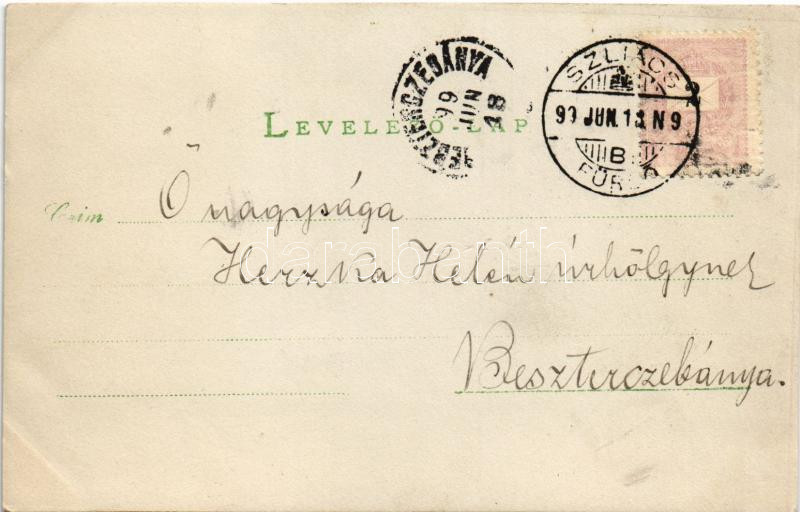 LEVELEZŐ-LAP
BESZTERCZEBÁNYA
99 JUN 18
SZLIÁCS
99 JUN. 18 N 9
B
FÜRDŐ
Czim
Ő nagysága
Herzka Helén úrhölgynek
Beszterczebánya.
darabanth